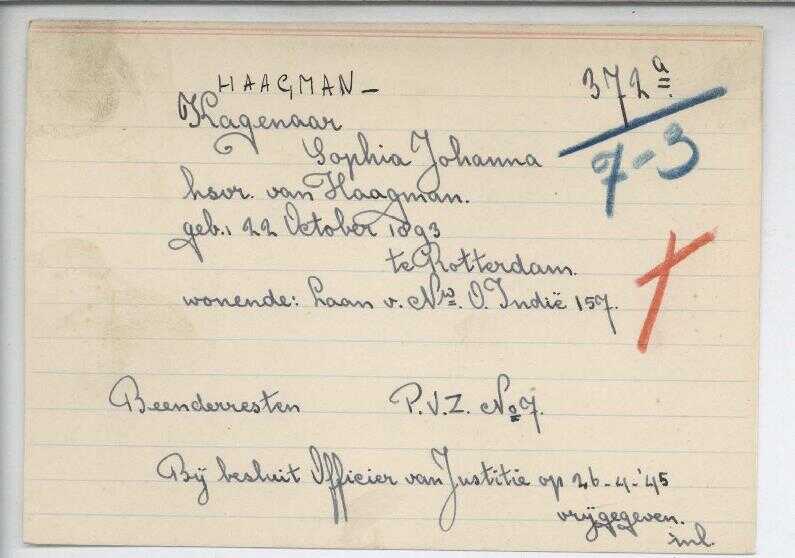 HAAGMAN-
372a
Kagenaar
7-3
Sophia Johanna
hsvr. van Haagman.
geb. 22 October 1893
te Rotterdam.
wonende: Laan v. Nw. O. Indië 157.
Beenderresten P.V.Z. No 7.
Bij besluit Officier van Justitie op 26-4-'45
vrijgegeven.